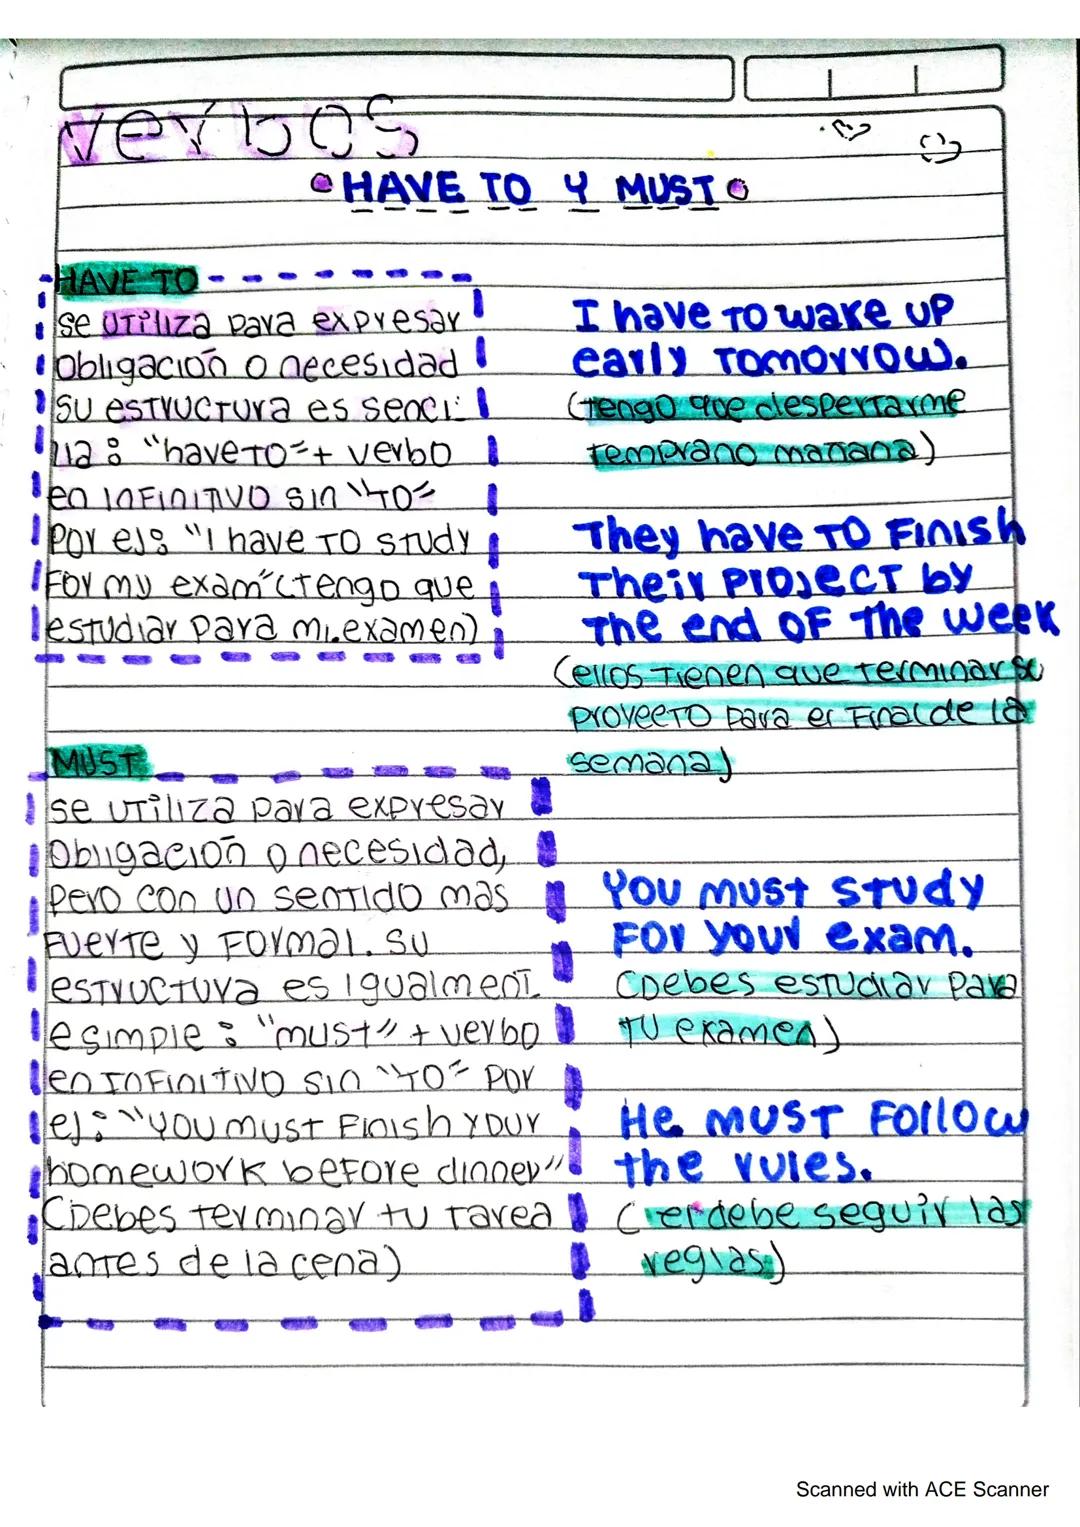 verbos
HAVE TO Y MUST
HAVE TO
se utiliza para expresar
obligación o necesidad
su estructura es senci
lla: "have to" + verbo
en infinitivo sin "to"
Por ej: "I have to study
For my exam" (tengo que
estudiar para mi examen)
I have to wake up
early tomorrow.
(tengo que despertarme
temprano mañana)
They have to Finish
Their Project by
The end OF The week
(ellos tienen que terminar su
proyecto para el Final de la
semana)
MUST
se utiliza para expresar
obligación o necesidad,
pero con un sentido mas
fuerte y Formal. Su
estructura es igualment
e simple: "must" + verbo
en infinitivo sin "to" Por
ej: "You must Finish your
homework before dinner"
(Debes terminar tu tarea
antes de la cena)
You must study
For your exam.
(Debes estudiar para
tu examen)
He must Follow
the rules.
(el debe seguir las
reglas)
Scanned with ACE Scanner